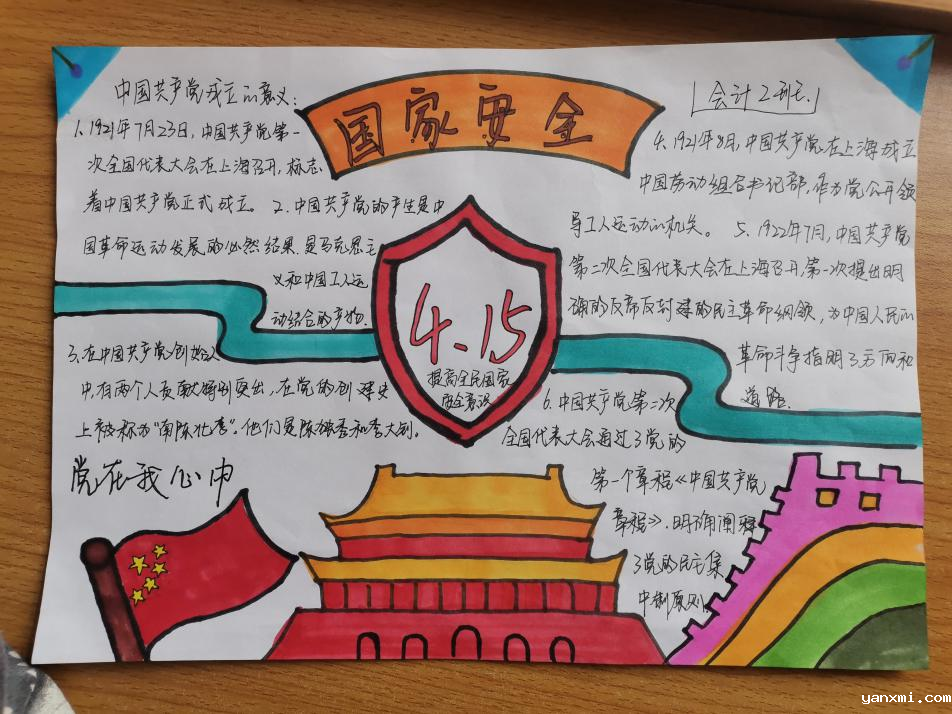 国家安全
会计2班
中国共产党成立的意义：
1.1921年7月23日，中国共产党第一
次全国代表大会在上海召开，标志
着中国共产党正式成立。2.中国共产党的产生是中
国革命运动发展的必然结果.是马克思主
义和中国工人运
动结合的产物.
3.在中国共产党创始人
中,有两个人贡献特别突出,在党的创建史
上被称为"南陈北李".他们是陈独秀和李大钊。
党在我心中
4.15
提高全民国家
安全意识
4.1921年8月，中国共产党在上海成立
中国劳动组合书记部，作为党公开领
导工人运动的机关。5.1922年7月,中国共产党
第二次全国代表大会在上海召开,第一次提出明
确的反帝反封建的民主革命纲领，为中国人民的
革命斗争指明了方向和
道路.
6.中国共产党第二次
全国代表大会通过了党的
第一个章程《中国共产党
章程》,明确阐释
了党的民主集
中制原则.
yanxmi.com